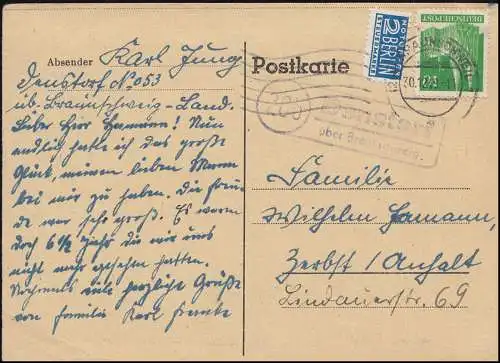 Absender Karl Jung
Denstorf No 053
üb. Braunschweig-Land.
Lieber Herr Hamann! Nun
endlich hatte ich das große
Glück, meinen lieben Mann
bei mir zu haben. Die Freu
de war sehr groß. Es waren
doch 6 1/2 Jahr die wir uns
nicht mehr gesehen hatten.
Nochmals viele herzliche Grüße
von Familie Karl
Postkarte
NOTOPFER
2 BERLIN
STEUERMARKE
DEUTSCHE POST
BRAUNSCHWEIG
30.12.
20b
Denstorf
über Braunschweig.
Familie
Wilhelm Hamann,
Zerbst / Anhalt
Lindauerstr. 69